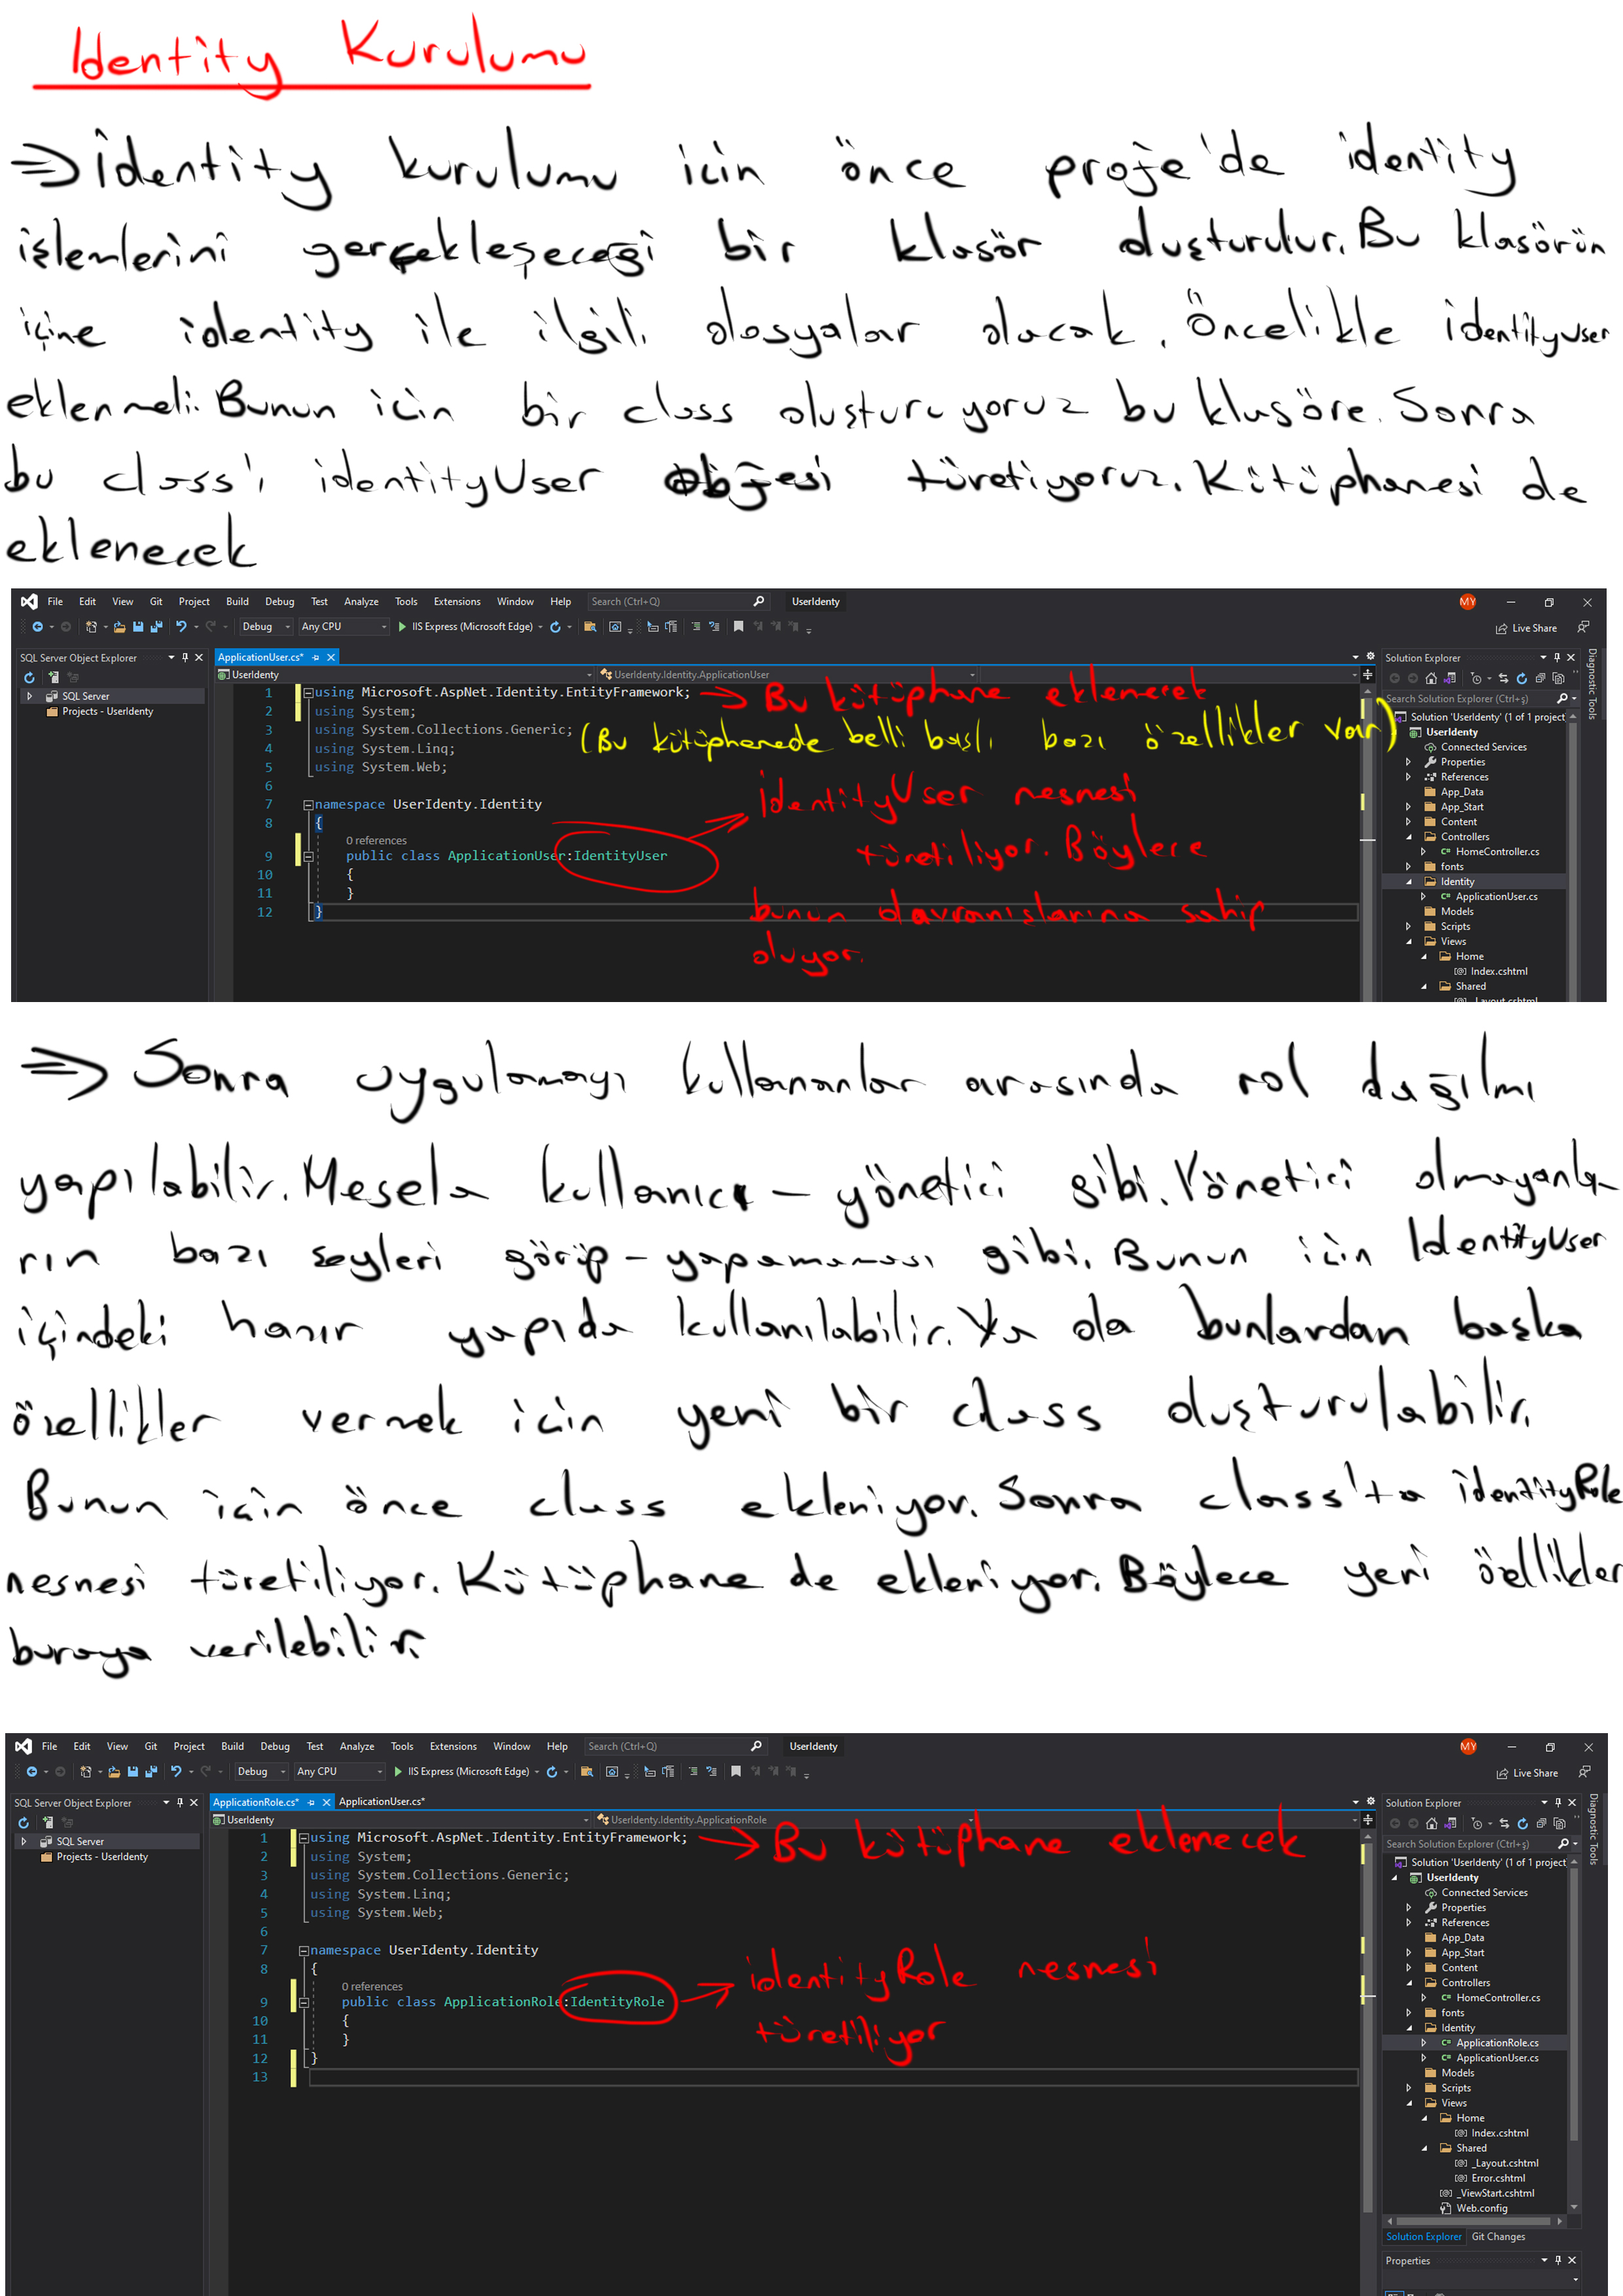 Identity Kurulumu
=> İdentity kurulumu için önce proje'de identity
işlemlerini gerçekleşeceği bir klasör oluşturulur. Bu klasörün
içine identity ile ilgili dosyalar olacak. Öncelikle identityUser
eklenmeli. Bunun için bir class oluşturuyoruz bu klasöre. Sonra
bu class'ı identityUser objesi türetiyoruz. Kütüphanesi de
eklenecek
File Edit View Git Project Build Debug Test Analyze Tools Extensions Window Help Search (Ctrl+Q) UserIdenty MY
Debug Any CPU IIS Express (Microsoft Edge) Live Share
SQL Server Object Explorer
SQL Server
Projects - UserIdenty
ApplicationUser.cs*
UserIdenty UserIdenty.Identity.ApplicationUser
1 using Microsoft.AspNet.Identity.EntityFramework; → Bu kütüphane eklenecek
2 using System;
3 using System.Collections.Generic; (Bu kütüphanede belli başlı bazı özellikler var)
4 using System.Linq;
5 using System.Web;
6
7 namespace UserIdenty.Identity
8 {
0 references
9 public class ApplicationUser:IdentityUser
10 {
11 }
12 }
identityUser nesnesi
türetiliyor. Böylece
bunun davranışlarına sahip
oluyor.
Solution Explorer
Search Solution Explorer (Ctrl+ş)
Solution 'UserIdenty' (1 of 1 project
UserIdenty
Connected Services
Properties
References
App_Data
App_Start
Content
Controllers
C# HomeController.cs
fonts
Identity
C# ApplicationUser.cs
Models
Scripts
Views
Home
Index.cshtml
Shared
_Layout.cshtml
Diagnostic Tools
=> Sonra uygulamayı kullananlar arasında rol dağılmı
yapılabilir. Mesela kullanıcı - yönetici gibi. Yönetici olmayanla-
rın bazı seyleri görüp - yapamaması gibi. Bunun için IdentityUser
içindeki hazır yapıda kullanılabilir. Ya da bunlardan başka
özellikler vermek için yeni bir class oluşturulabilir.
Bunun için önce class ekleniyor. Sonra class'ta identityRole
nesnesi türetiliyor. Kütüphane de ekleniyor. Böylece yeni özellikler
buraya verilebilir.
File Edit View Git Project Build Debug Test Analyze Tools Extensions Window Help Search (Ctrl+Q) UserIdenty MY
Debug Any CPU IIS Express (Microsoft Edge) Live Share
SQL Server Object Explorer
SQL Server
Projects - UserIdenty
ApplicationRole.cs* ApplicationUser.cs*
UserIdenty UserIdenty.Identity.ApplicationRole
1 using Microsoft.AspNet.Identity.EntityFramework; → Bu kütüphane eklenecek
2 using System;
3 using System.Collections.Generic;
4 using System.Linq;
5 using System.Web;
6
7 namespace UserIdenty.Identity
8 {
0 references
9 public class ApplicationRole:IdentityRole
10 {
11 }
12 }
13
identityRole nesnesi
türetiliyor
Solution Explorer
Search Solution Explorer (Ctrl+ş)
Solution 'UserIdenty' (1 of 1 project
UserIdenty
Connected Services
Properties
References
App_Data
App_Start
Content
Controllers
C# HomeController.cs
fonts
Identity
C# ApplicationRole.cs
C# ApplicationUser.cs
Models
Scripts
Views
Home
Index.cshtml
Shared
_Layout.cshtml
Error.cshtml
_ViewStart.cshtml
Web.config
Solution Explorer Git Changes
Properties
Diagnostic Tools